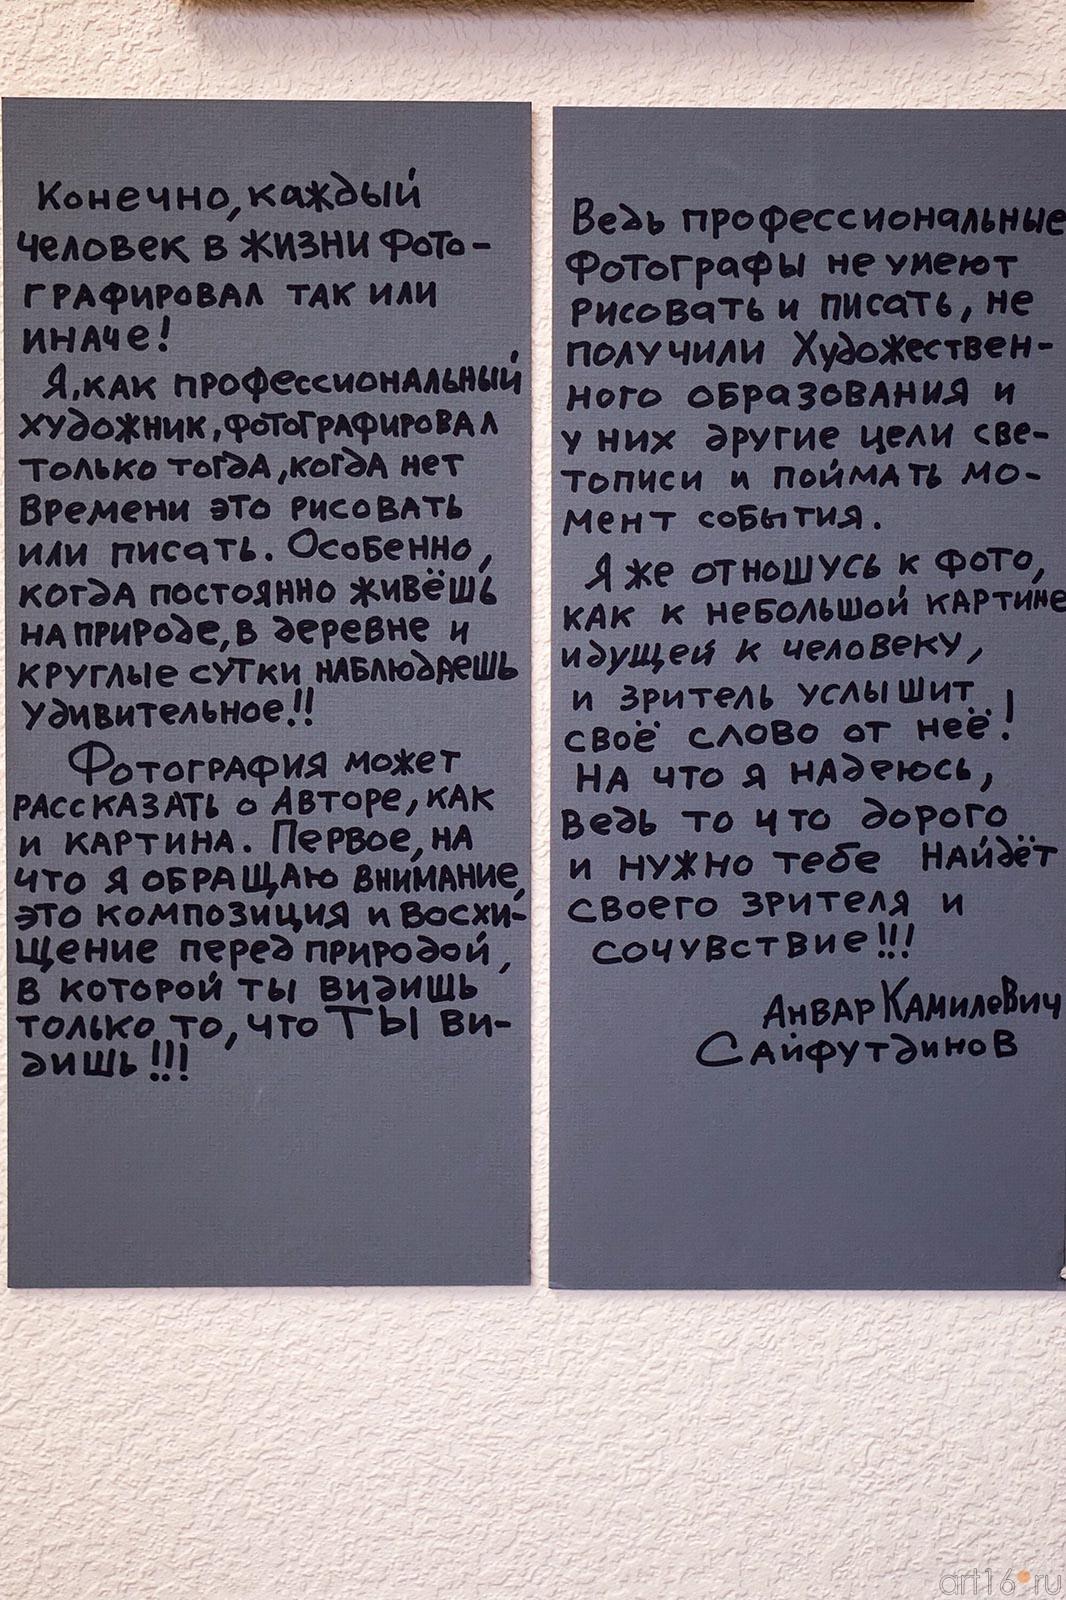 Конечно, каждый
человек в жизни фото-
графировал так или
иначе!
Я, как профессиональный
художник, фотографировал
только тогда, когда нет
времени это рисовать
или писать. Особенно,
когда постоянно живёшь
на природе, в деревне и
круглые сутки наблюдаешь
удивительное!!
Фотография может
рассказать о авторе, как
и картина. Первое, на
что я обращаю внимание,
это композиция и восхи-
щение перед природой,
в которой ты видишь
только то, что ТЫ ви-
дишь!!!
Ведь профессиональные
фотографы не умеют
рисовать и писать, не
получили Художествен-
ного образования и
у них другие цели све-
тописи и поймать мо-
мент события.
Я же отношусь к фото,
как к небольшой картине
идущей к человеку,
и зритель услышит
своё слово от неё!
На что я надеюсь,
ведь то что дорого
и нужно тебе найдёт
своего зрителя и
сочувствие!!!
Анвар Камилевич
Сайфутдинов
art16.ru